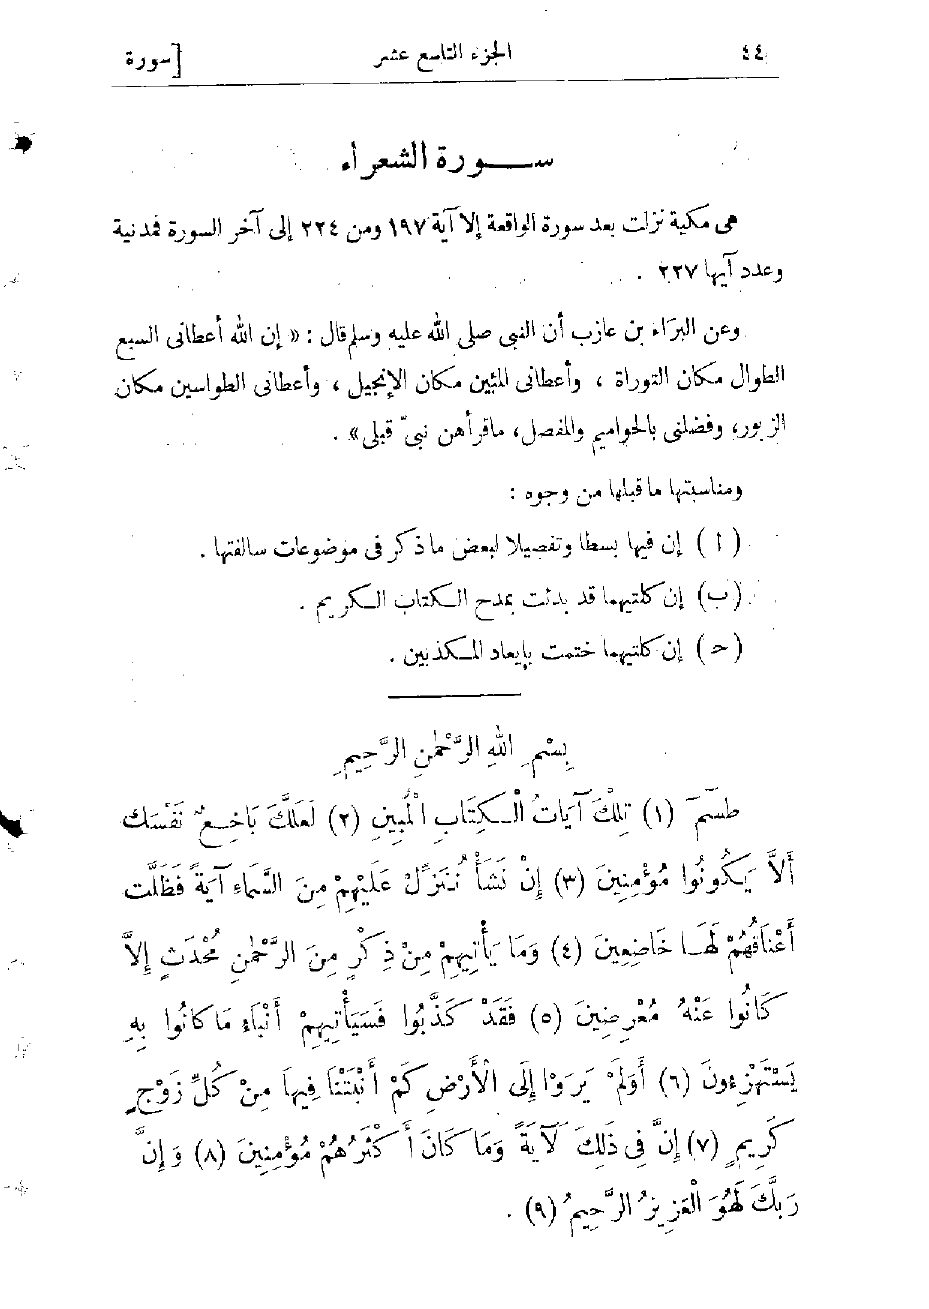 ٤٤ الجزء التاسع عشر [سورة
ســورة الشعراء
هى مكية نزلت بعد سورة الواقعة إلا آية ١٩٧ ومن ٢٢٤ إلى آخر السورة فمدنية
وعدد آيها ٢٢٧ .
وعن البرَاء بن عازب أن النبى صلى الله عليه وسلم قال : « إن الله أعطانى السبع
الطوال مكان التوراة ، وأعطانى المئين مكان الإنجيل ، وأعطانى الطواسين مكان
الزبور، وفضلنى بالحواميم والمفصل، ماقرأهن نبىّ قبلى» .
ومناسبتها ما قبلها من وجوه :
( ا ) إن فيها بسطا وتفصيلا لبعض ما ذكر فى موضوعات سالفتها .
(ب) إن كلتيهما قد بدئت بمدح الكتاب الكريم .
(ح) إن كلتيهما ختمت بإيعاد المكذبين .
بِسْمِ اللهِ الرَّحْمٰنِ الرَّحِيمِ
طٰسٓمٓ (١) تِلْكَ آيَاتُ الْكِتَابِ الْمُبِينِ (٢) لَعَلَّكَ بَاخِعٌ نَفْسَكَ
أَلاَّ يَكُونُوا مُؤْمِنِينَ (٣) إِنْ نَشَأْ نُنَزِّلْ عَلَيْهِمْ مِنَ السَّمَاءِ آيَةً فَظَلَّتْ
أَعْنَاقُهُمْ لَهَا خَاضِعِينَ (٤) وَمَا يَأْتِيهِمْ مِنْ ذِكْرٍ مِنَ الرَّحْمٰنِ مُحْدَثٍ إِلاَّ
كَانُوا عَنْهُ مُعْرِضِينَ (٥) فَقَدْ كَذَّبُوا فَسَيَأْتِيهِمْ أَنْبَاءُ مَا كَانُوا بِهِ
يَسْتَهْزِءُونَ (٦) أَوَلَمْ يَرَوْا إِلَى الْأَرْضِ كَمْ أَنْبَتْنَا فِيهَا مِنْ كُلِّ زَوْجٍ
كَرِيمٍ (٧) إِنَّ فِى ذٰلِكَ لَآيَةً وَمَا كَانَ أَكْثَرُهُمْ مُؤْمِنِينَ (٨) وَإِنَّ
رَبَّكَ لَهُوَ الْعَزِيزُ الرَّحِيمُ (٩) .